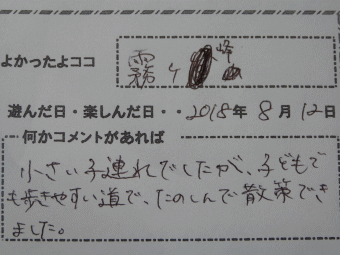 よかったよココ 霧ヶ峰
遊んだ日・楽しんだ日・・2018年 8月 12日
何かコメントがあれば
小さい子連れでしたが、子どもで
も歩きやすい道で、たのしんで散策でき
ました。